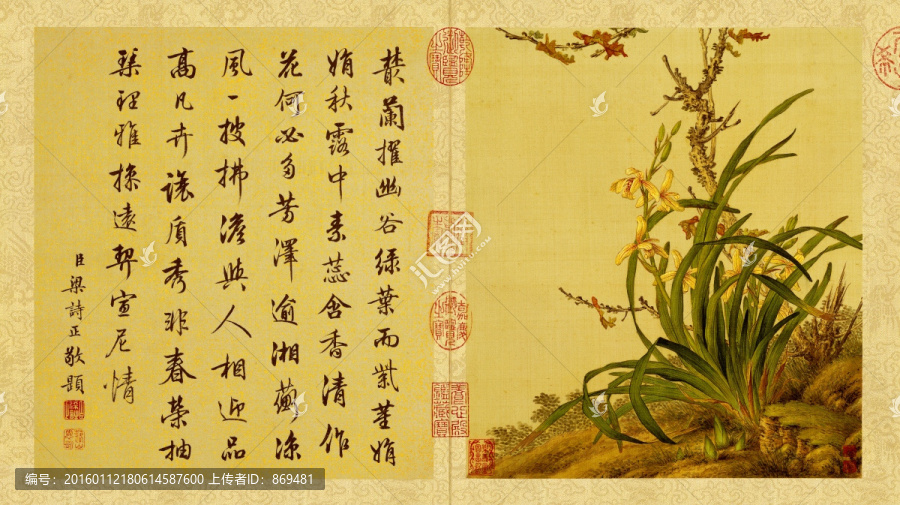 叢蘭擢幽谷綠葉而紫莖娟
娟秋露中素蕊含香清作
花何必多芳澤逾湘蘅涼
風一披拂澹與人相迎品
高凡卉讓質秀非春榮抽
琴理雅操遠契宣尼情
臣梁詩正敬題
汇图网
编号:20160112180614587600 上传者ID:869481